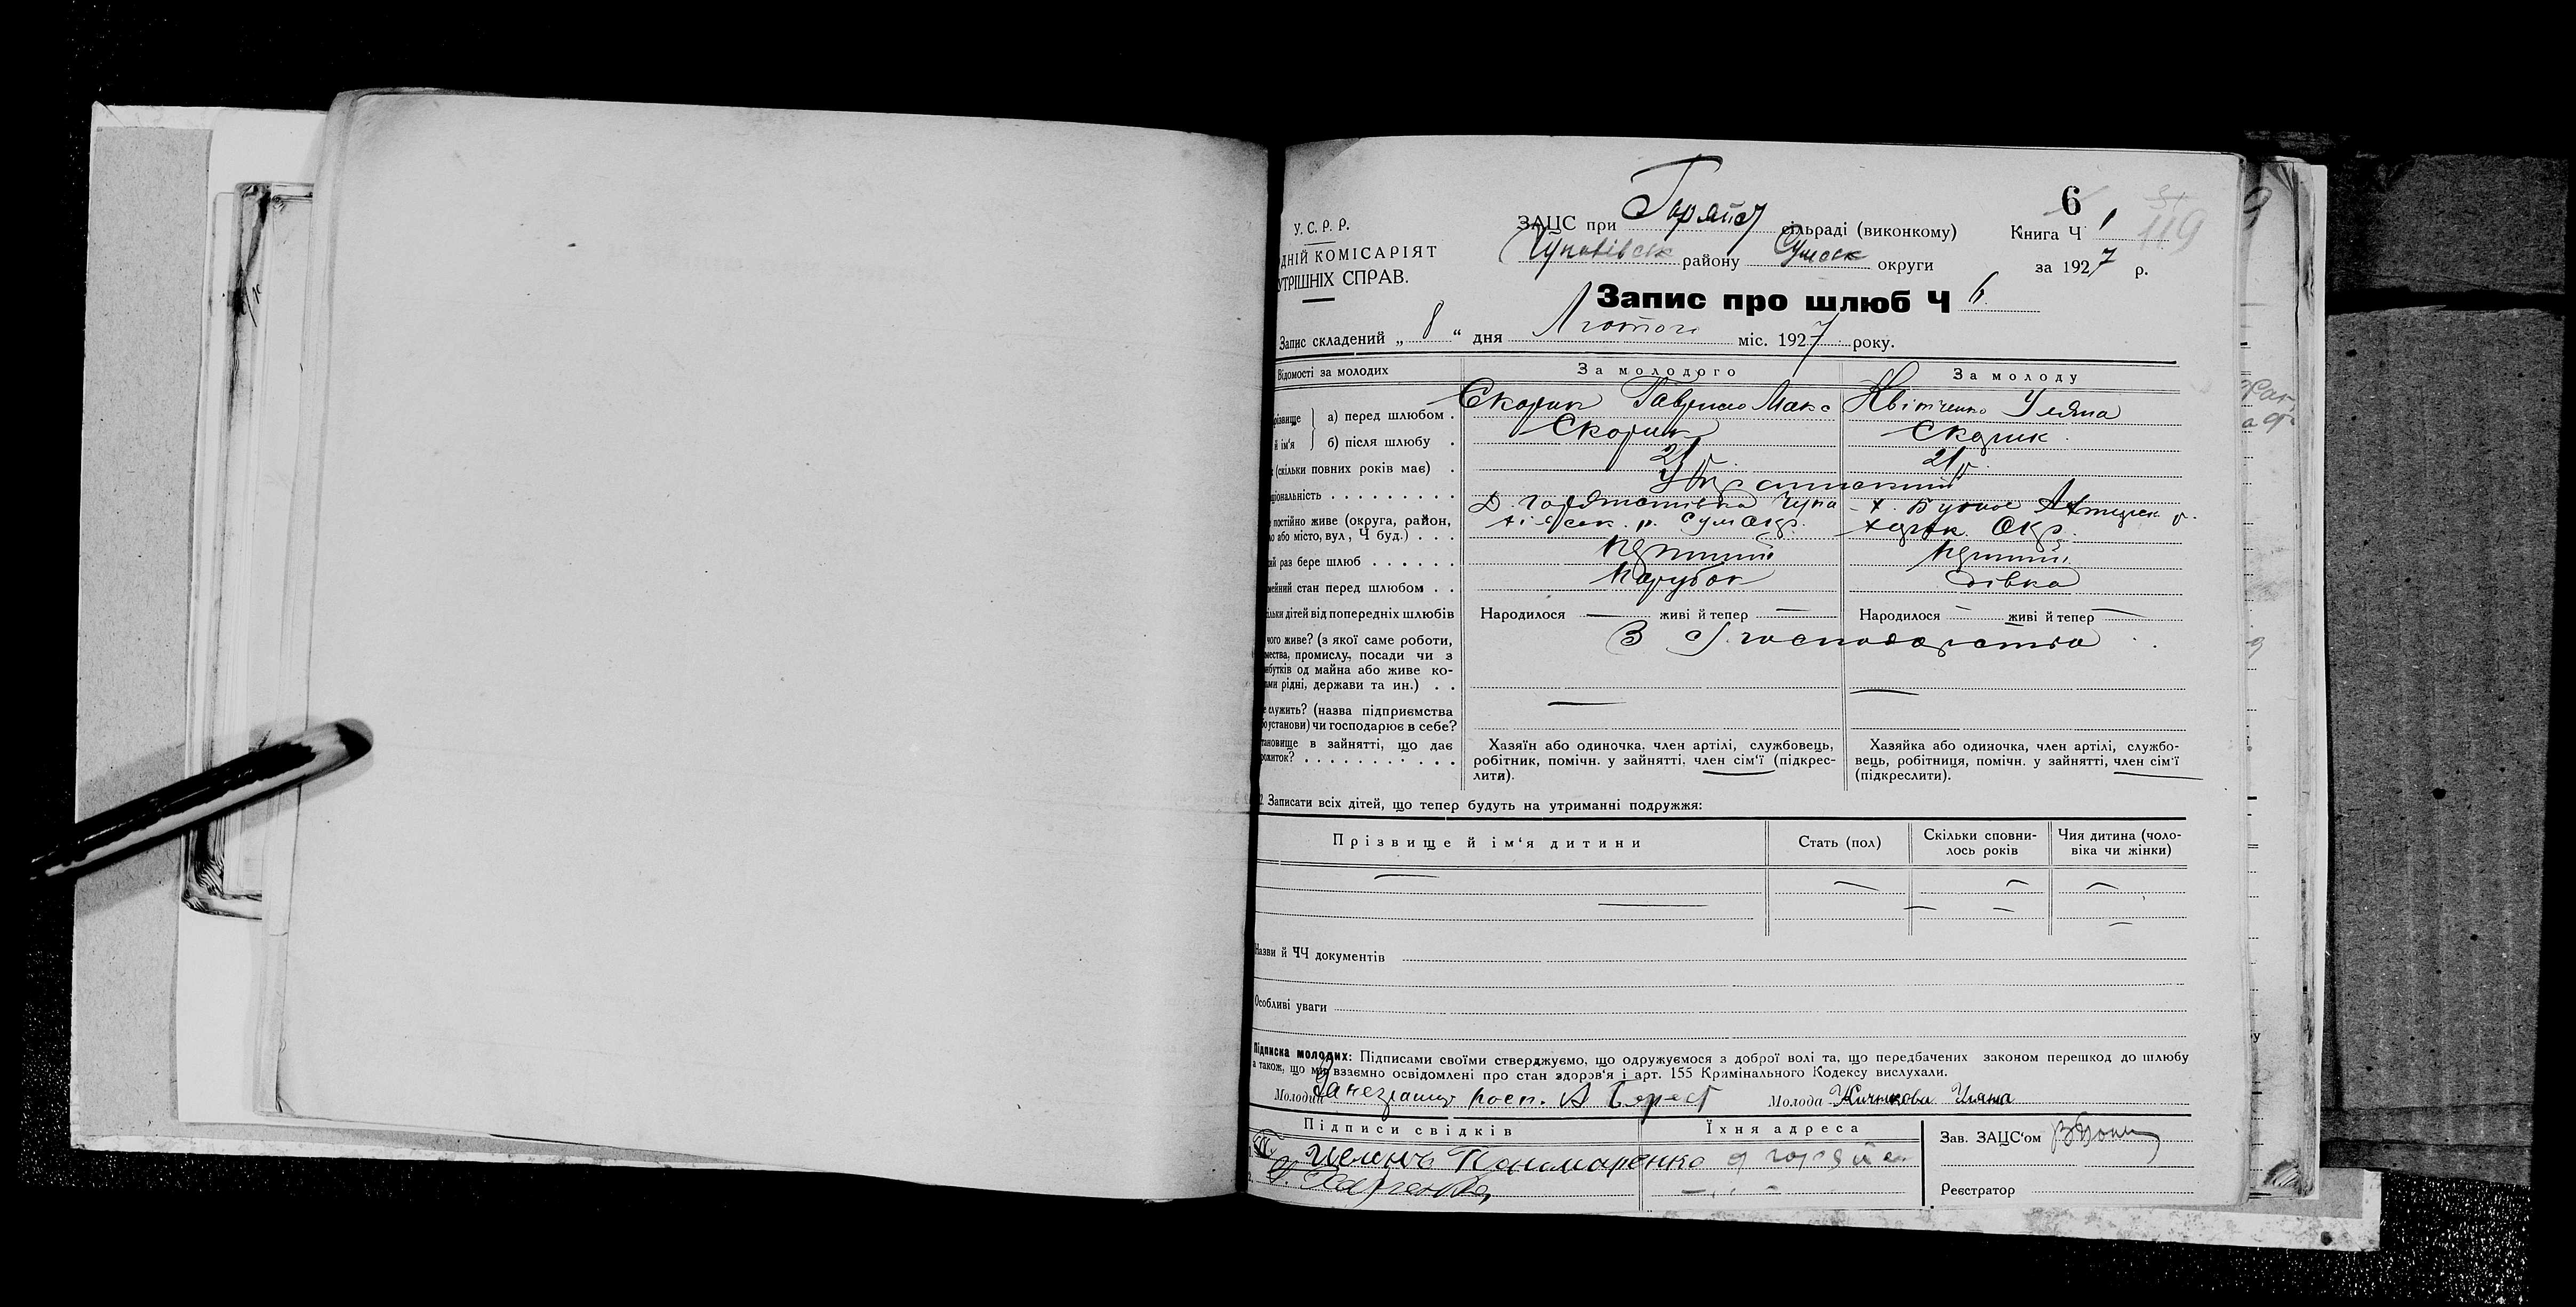 6
У. С. Р. Р.
ЗАЦС при Горяйст сільраді (виконкому)
Книга Ч 1
119
ДНІЙ КОМІСАРІЯТ
УТРІШНІХ СПРАВ.
Чупахівськ району Сумськ округи
за 1927 р.
Запис про шлюб Ч 6.
Запис складений „ 8 “ дня Лютого міс. 1927 року.
Відомості за молодих
За молодого
За молоду
різвище й ім'я
а) перед шлюбом .
Скорик Гаврило Макс
Квітченко Уляна
б) після шлюбу .
Скорик
Скорик
(скільки повних років має) .
21 р.
21 р.
ціональність . . . . . . . . .
Український
постійно живе (округа, район,
о або місто, вул, Ч буд.) . . .
Сум Окр.
Окр.
ий раз бере шлюб . . . . . .
перший
перший
мейний стан перед шлюбом . .
парубок
дівка
ільки дітей від попередніх шлюбів
Народилося — живі й тепер —
Народилося — живі й тепер —
чого живе? (з якої саме роботи,
мества, промислу, посади чи з
ибутків од майна або живе ко-
ами рідні, держави та ин.) . .
З с/господарства
е служить? (назва підприємства
бо установи) чи господарює в себе?
тановище в зайнятті, що дає
рожиток? . . . . . . . . . . .
Хазяїн або одиночка, член артілі, службовець,
робітник, помічн. у зайнятті, член сім'ї (підкрес-
лити).
Хазяйка або одиночка, член артілі, службо-
вець, робітниця, помічн. у зайнятті, член сім'ї
(підкреслити).
2 Записати всіх дітей, що тепер будуть на утриманні подружжя:
Прізвище й ім'я дитини
Стать (пол)
Скільки сповни-
лось років
Чия дитина (чоло-
віка чи жінки)
Назви й ЧЧ документів
Особливі уваги
Підписка молодих: Підписами своїми стверджуємо, що одружуємося з доброї волі та, що передбачених законом перешкод до шлюбу
а також, що ми взаємно освідомлені про стан здоров'я і арт. 155 Кримінального Кодексу вислухали.
Молодий
Молода
Підписи свідків
Їхня адреса
Зав. ЗАЦС'ом
Пономаренко
Реєстратор